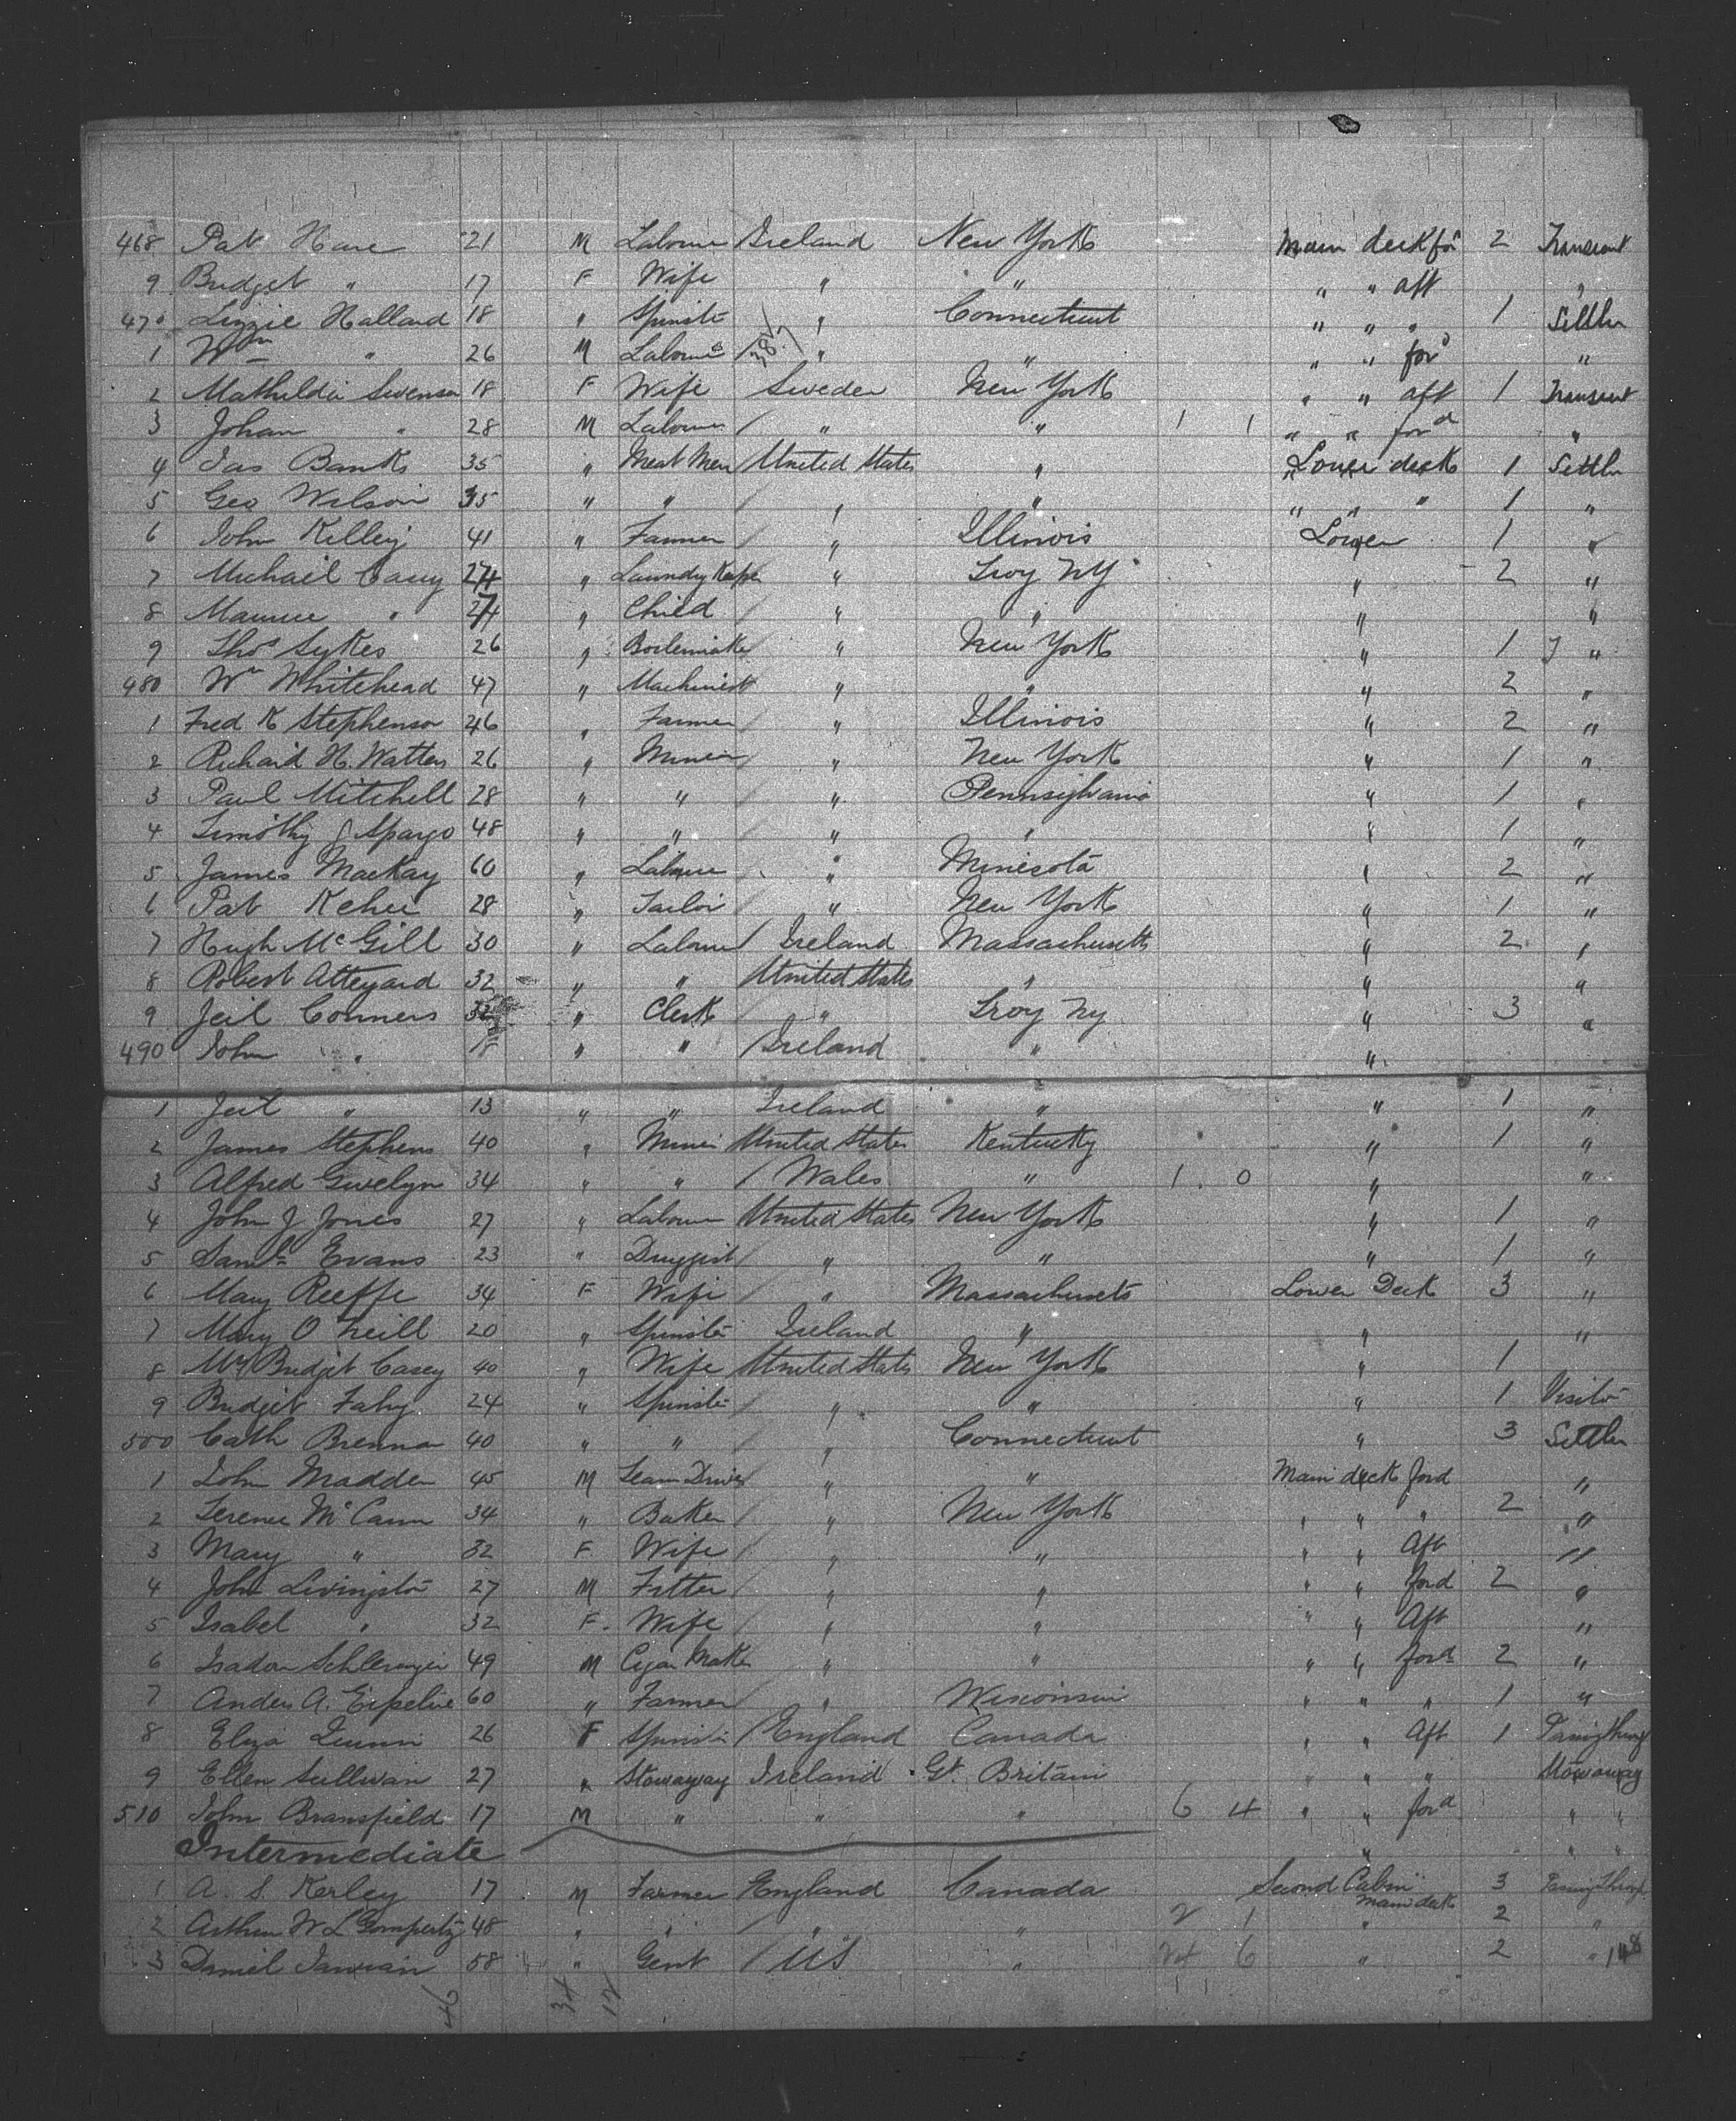 468 Pat Hare 21 M Labourer Ireland New York Main deck for 2 Transient
9 Bridget " 17 F Wife " " " " aft "
470 Lizzie Halland 18 " Spinster " Connecticut " " " 1 Settler
1 Wm " 26 M Labourer " " " " ford "
2 Mathilda Swenson 18 F Wife Sweden New York " " aft 1 Transient
3 Johan " 28 M Labourer " " 1 1 " " ford "
4 Jas Banks 35 " Meat Men United States " Lower deck 1 Settler
5 Geo Wilson 35 " " " " " " " 1 "
6 John Killey 41 " Farmer " Illinois Lower 1 "
7 Michail Casey " Laundry Keeper " Troy NY " 2 "
8 Maurice " " Child " " " "
9 Thos Sykes 26 " Boilermaker " New York " 1 "
480 Wm Whitehead 47 " Machinist " " " 2 "
1 Fred K Stephenson 46 " Farmer " Illinois " 2 "
2 Richard H. Watters 26 " Miner " New York " 1 "
3 Paul Mitchell 28 " " " Pennsylvania " 1 "
4 Timothy J Spargo 48 " " " " " 1 "
5 James Mackay 60 " Labourer " Minesota " 2 "
6 Pat Kehu 28 " Tailor " New York " 1 "
7 Hugh McGill 30 " Labourer Ireland Massachusetts " 2 "
8 Robert Atteyard 32 " " United States " " "
9 Jeil Conners 32 " Clerk " Troy Ny " 3 "
490 John " 18 " " Ireland " "
1 Jeil " 13 " " Ireland " " 1 "
2 James Stephens 40 " Miner United States Kentucky " 1 "
3 Alfred Gwelyn 34 " " Wales " 1 0 " "
4 John J Jones 27 " Labourer United States New York " 1 "
5 Saml Evans 23 " Druggist " " " 1 "
6 Mary Reeffe 34 F Wife " Massachusets Lower Deck 3 "
7 Mary O Neill 20 " Spinster Ireland " " "
8 Mrs Bridget Casey 40 " Wife United States New York " 1
9 Bridget Fahy 24 " Spinster " " " 1 Visitor
500 Cath Brennan 40 " " " Connecticut " 3 Settler
1 John Madden 45 M Team Driver " " Main deck ford "
2 Terence McCann 34 " Baker " New York " " " 2 "
3 Mary " 32 F Wife " " " " Aft "
4 John Livingston 27 M Fitter " " " " ford 2 "
5 Isabel " 32 F. Wife " " " " Aft "
6 Isadon Schlesinger 49 M Cigar Maker " " " " ford 2 "
7 Anders A. 60 " Farmer " Wisconsin " " " 1 "
8 Eliza Quinn 26 F Spinster England Canada " " Aft 1 Passing through
9 Ellen Sullivan 27 " Stowaway Ireland Gt. Britain " " " Stowaway
510 John Bransfield 17 M " " " 6 4 " " ford " "
Intermediate " " "
1 A. S. Kerley 17 M Farmer England Canada Second Cabin Main deck 3 Passing through
2 Arthur W L Gompertz 48 " " " " 2 1 " 2 "
3 Daniel 58 " Gent US " 24 6 " 2 " 148
46 34 12